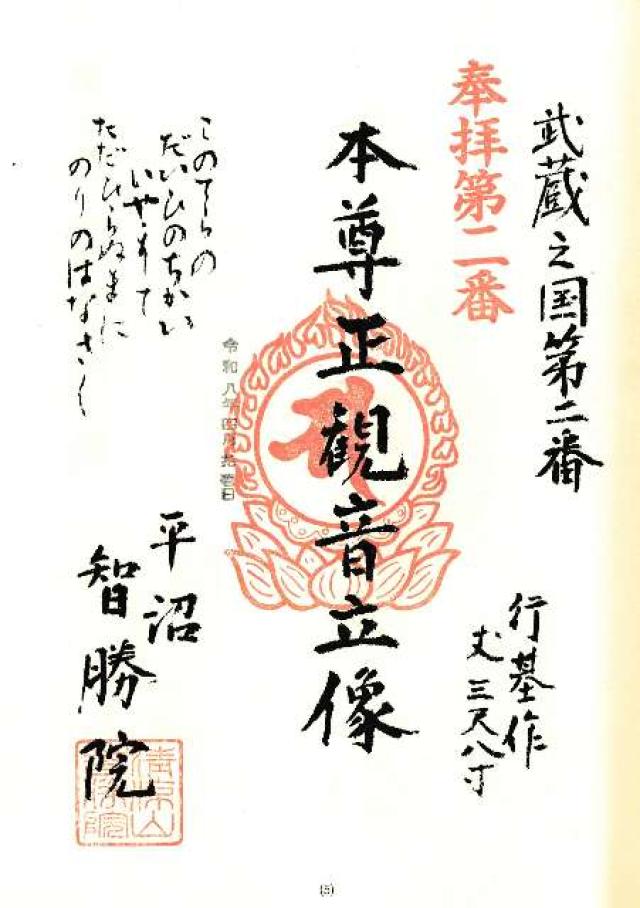 武蔵之国第二番
奉拝第二番
行基作
丈三尺八寸
本尊正観音立像
令和八年四月拾壱日
このてらの
だいひのちかい
いやすて
ただひらぬまに
のりのはなさく
平沼
智勝院
(5)